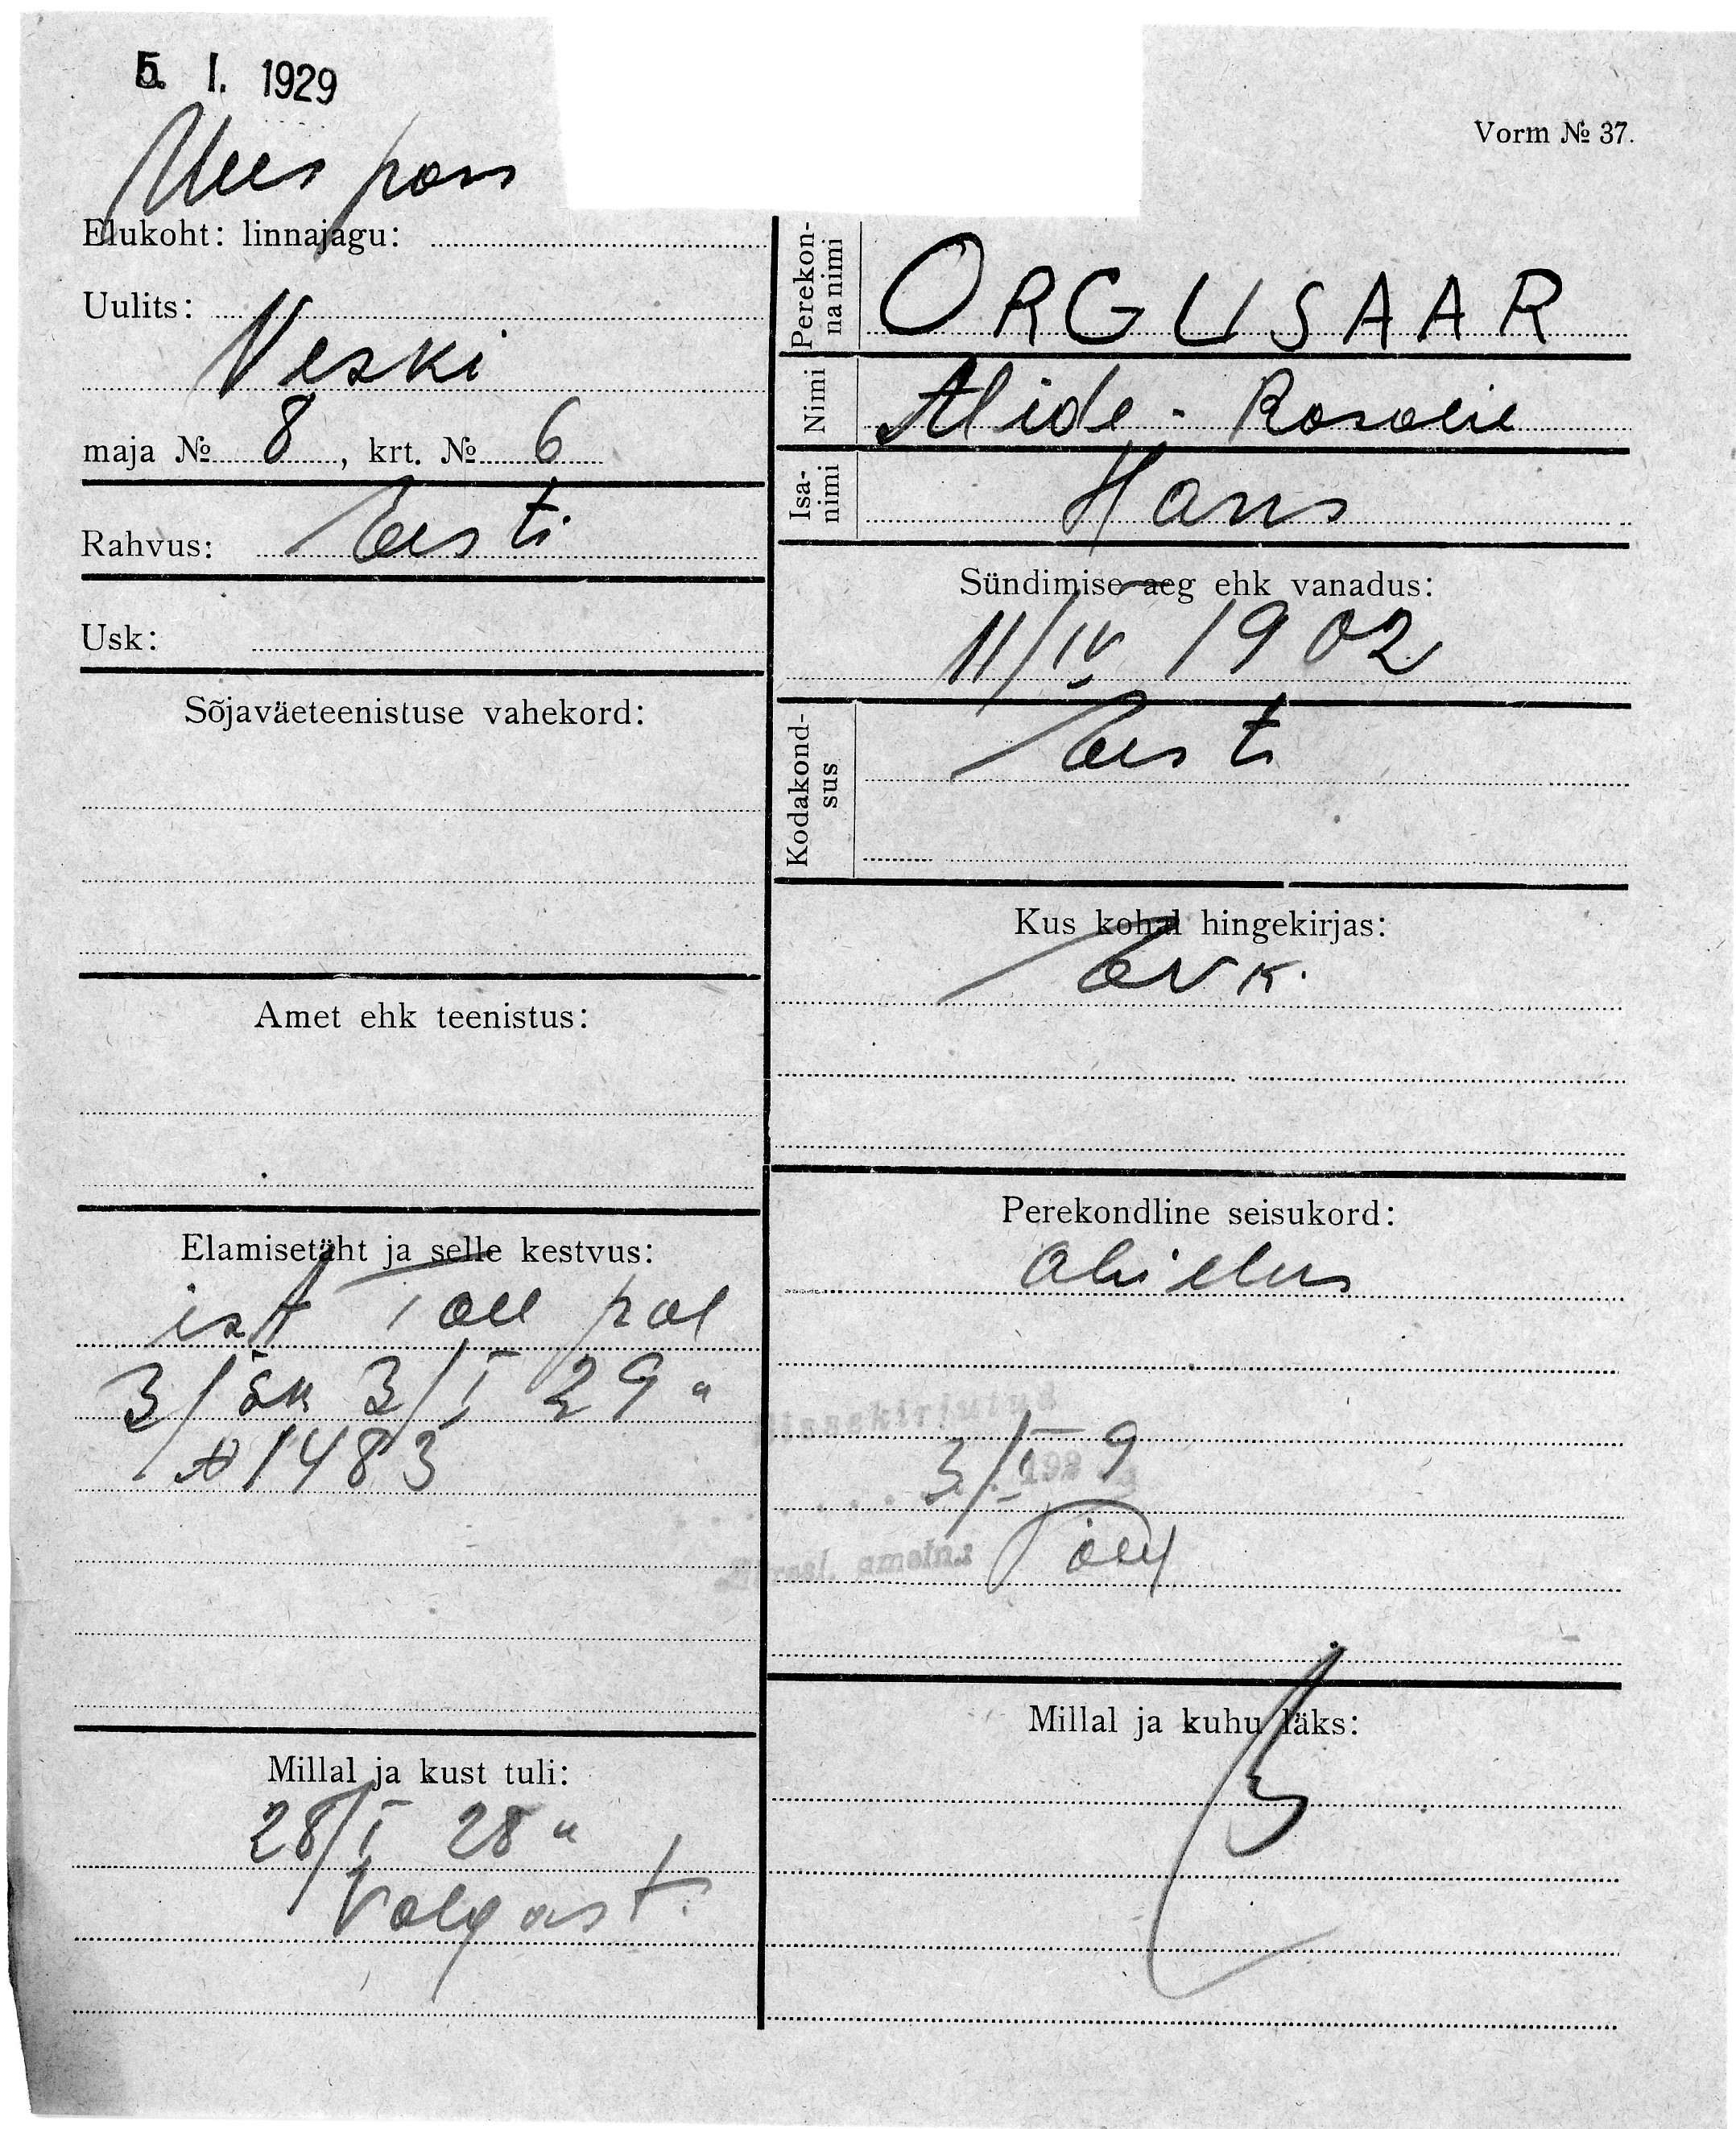 5. I. 1929
Uus pass
Vorm № 37.
Elukoht: linnajagu:
Uulits:
Veski
maja № 8, krt. № 6
Rahvus: Eesti
Usk:
Sõjaväeteenistuse vahekord:
Amet ehk teenistus:
Elamisetäht ja selle kestvus:
ist pol
3/ 3/I 29 "
№ 1483
Millal ja kust tuli:
28/I 28 "
Valgast.
Perekonna nimi ORGUSAAR
Nimi Alide - Rosalie
Isanimi Hans
Sündimise aeg ehk vanadus:
11/IV 1902
Kodakondsus Eesti
Kus kohal hingekirjas:
Perekondline seisukord:
abielus
Sissekirjutud
3/I 1929
ametn.:
Millal ja kuhu läks: